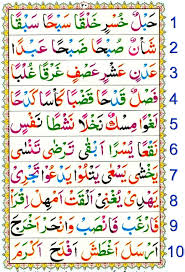 حَبْلٌ خُسْرٍ خَلْقًا سَبْحًا سَبْقًا 1
شَأْنٌ صُبْحًا ضَبْحًا عَبْدًا 2
عَدْنٍ عَشْرٍ عَصْفٍ غَرْقًا غُلْبًا 3
فَصْلٌ قَدْحًا قَضْبًا كَأْسًا كَدْحًا 4
لَغْوًا مِسْكٌ نَخْلًا نَشْطًا نَفْسٍ 5
نَقْعًا يُسْرًا اَبْقٰى تَرْضٰى تَنْسٰى 6
يَخْشٰى يَسْعٰى يَتْلُوْا يَدْعُوْا تَجْرِيْ 7
يَهْدِيْ يُغْنِيْ اَلْقَتْ اَمْهِلْ اِقْرَأْ 8
فَارْغَبْ فَانْصَبْ وَانْحَرْ اَخْرَجَ 9
اَرْسَلَ اَغْطَشَ اَفْلَحَ اَكْرَمَ 10